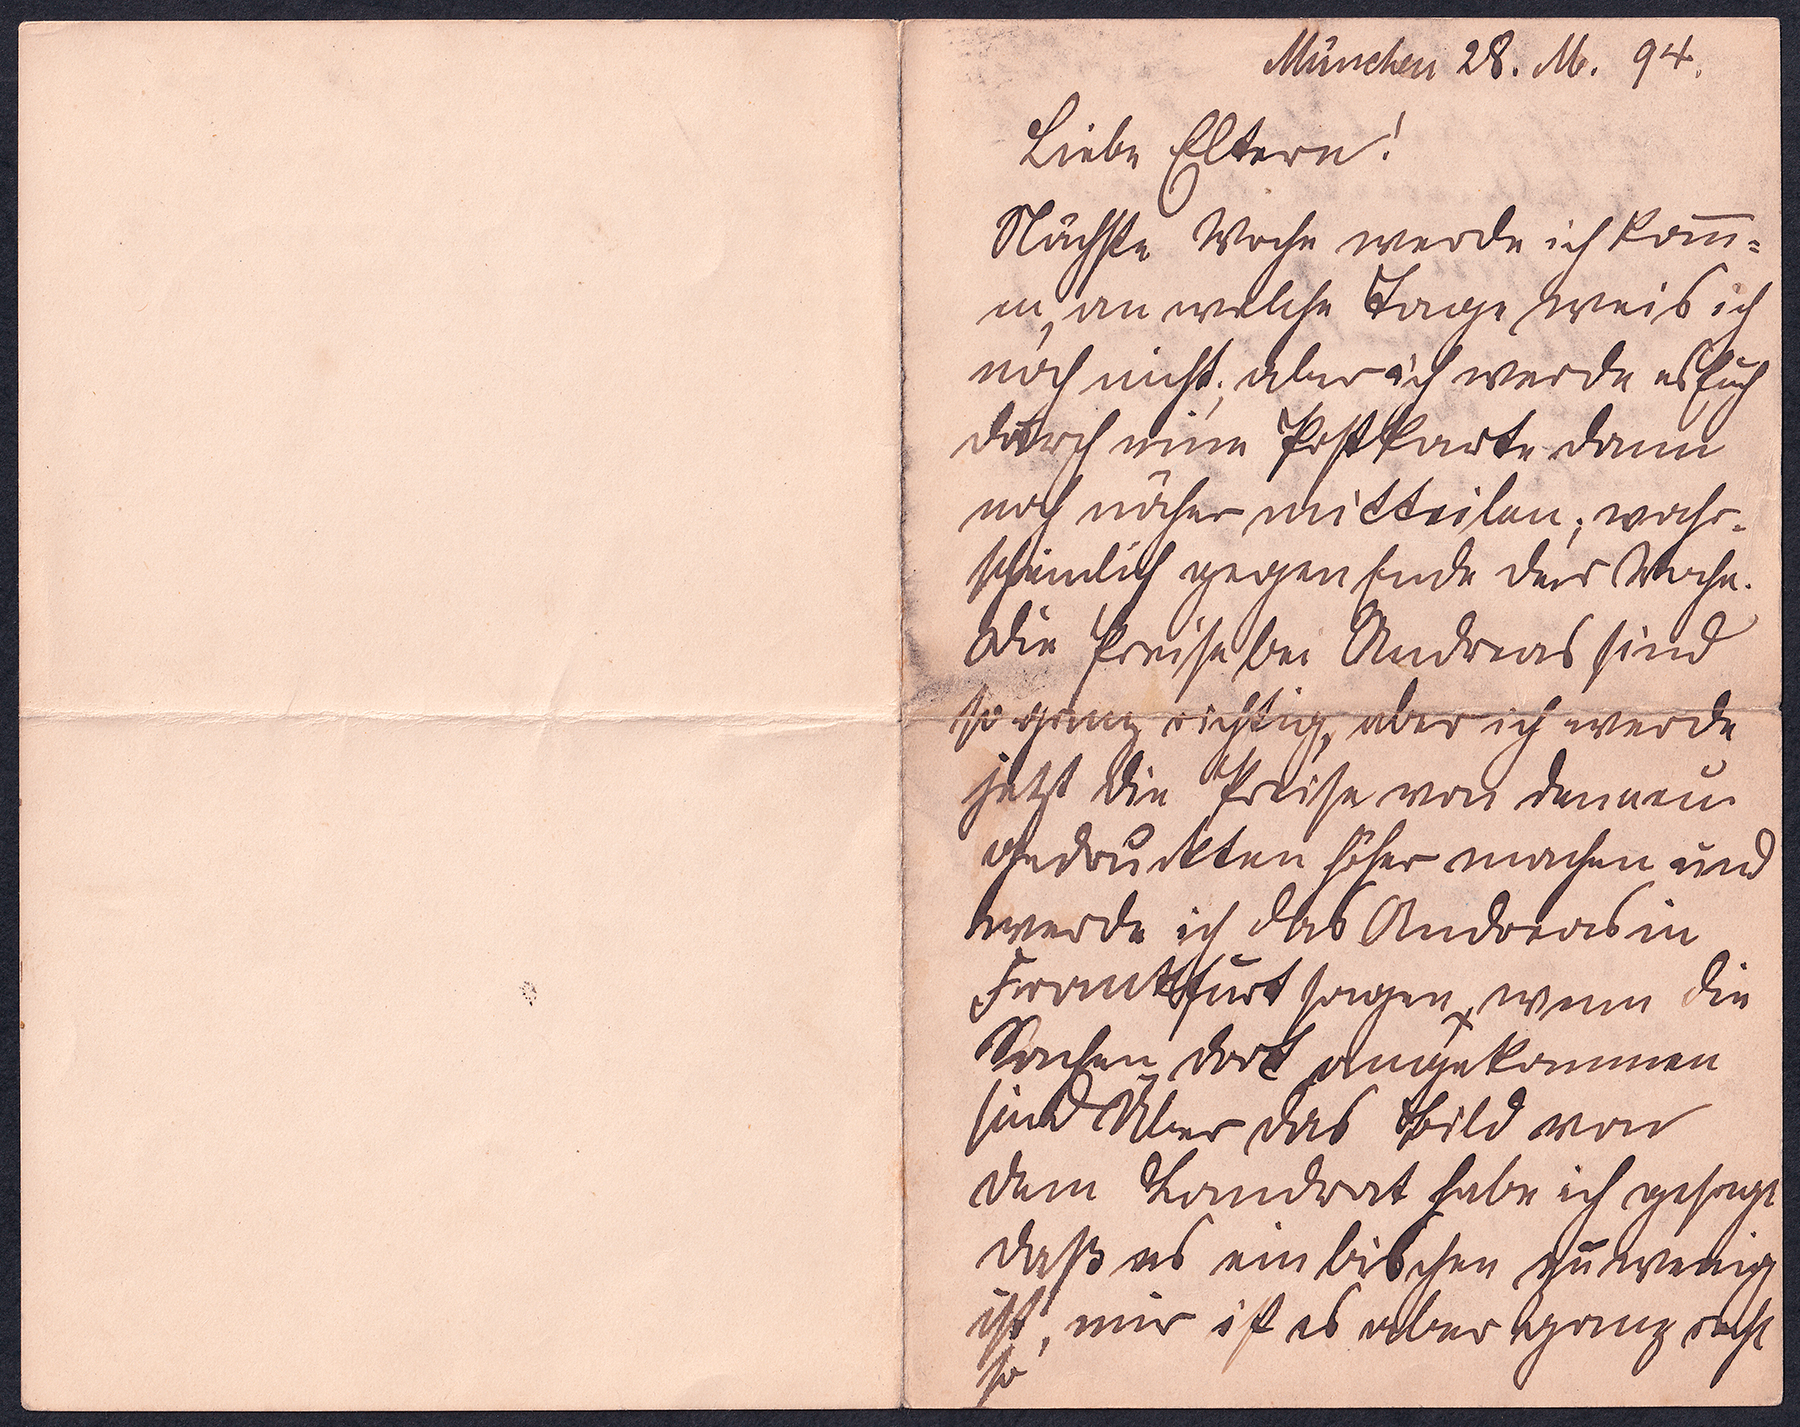 München 28. M. 94.
Liebe Eltern!
Nächste Woche werde ich kom̅=
en, an welche Tage weis ich
noch nicht; aber ich werde es Euch
durch eine Postkarte dann
noch näher mitteilen; wahr-
scheinlich gegen Ende der Woche.
Die Preise bei Andreas sind
so ganz richtig, aber ich werde
jetzt die Preise von den neu
gedruckten höher machen und
werde ich das Andreas in
Frankfurt sagen, wenn die
Sachen dort angekommen
sind Über das Bild von
dem Landrat habe ich gesagt
daß es ein bischen zu wenig
ist, mir ist es aber ganz recht
so